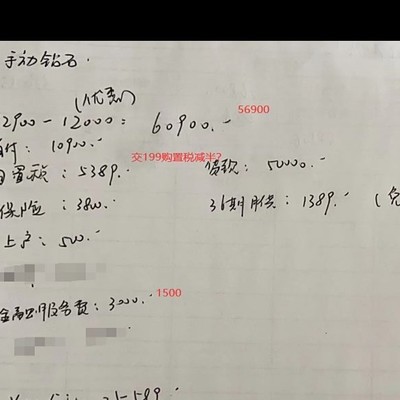 手动钻石.
(优惠)
2900-12000: 60900.-
56900
付: 10900.-
交199购置税减半?
置税: 5389.-
贷款: 50000.-
保险: 3800.-
36期月供: 1389.-
上户: 500.-
金融服务费: 3000.-
1500